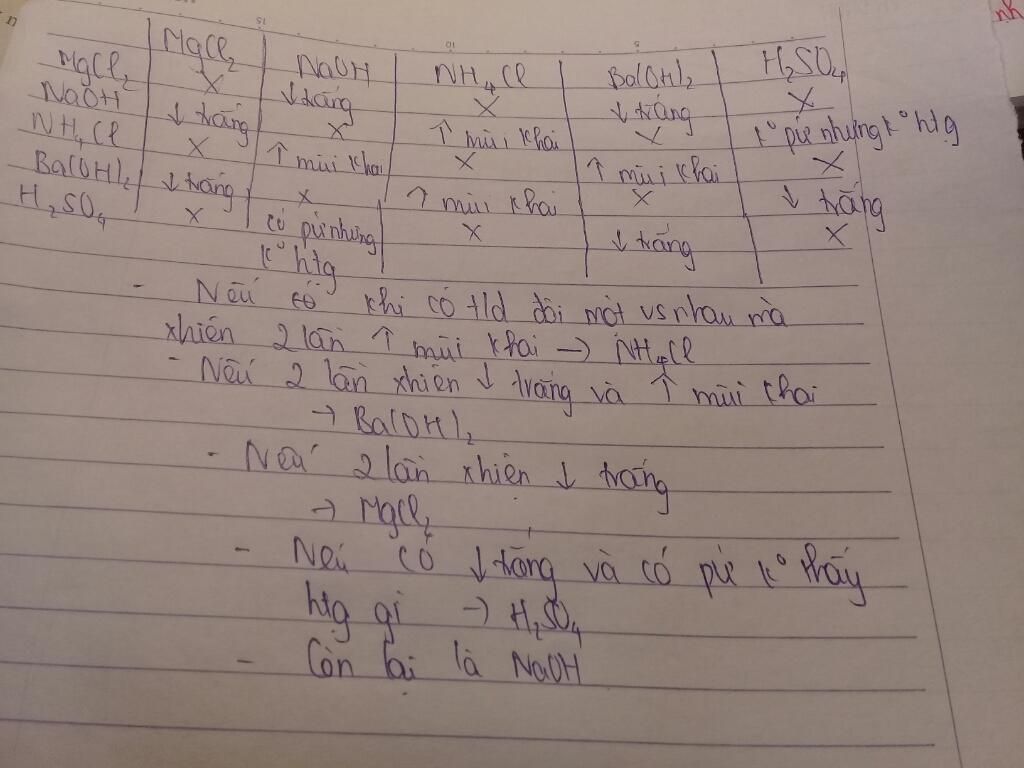 MgCl₂ NaOH NH₄Cl Ba(OH)₂ H₂SO₄
MgCl₂ X ↓ trắng X ↓ trắng X
NaOH ↓ trắng X ↑ mùi khai X k° pứ nhưng k° htg
NH₄Cl X ↑ mùi khai X ↑ mùi khai X
Ba(OH)₂ ↓ trắng X ↑ mùi khai X ↓ trắng
H₂SO₄ X có pứ nhưng X ↓ trắng X
k° htg
- Nếu có khi có tld đôi một vs nhau mà
xhiên 2 lần ↑ mùi khai → NH₄Cl
- Nếu 2 lần xhiên ↓ trắng và ↑ mùi khai
→ Ba(OH)₂
- Nếu 2 lần xhiên ↓ trắng
→ MgCl₂
- Nếu có ↓ trắng và có pứ k° thấy
htg gì → H₂SO₄
- Còn lại là NaOH
15 10 5